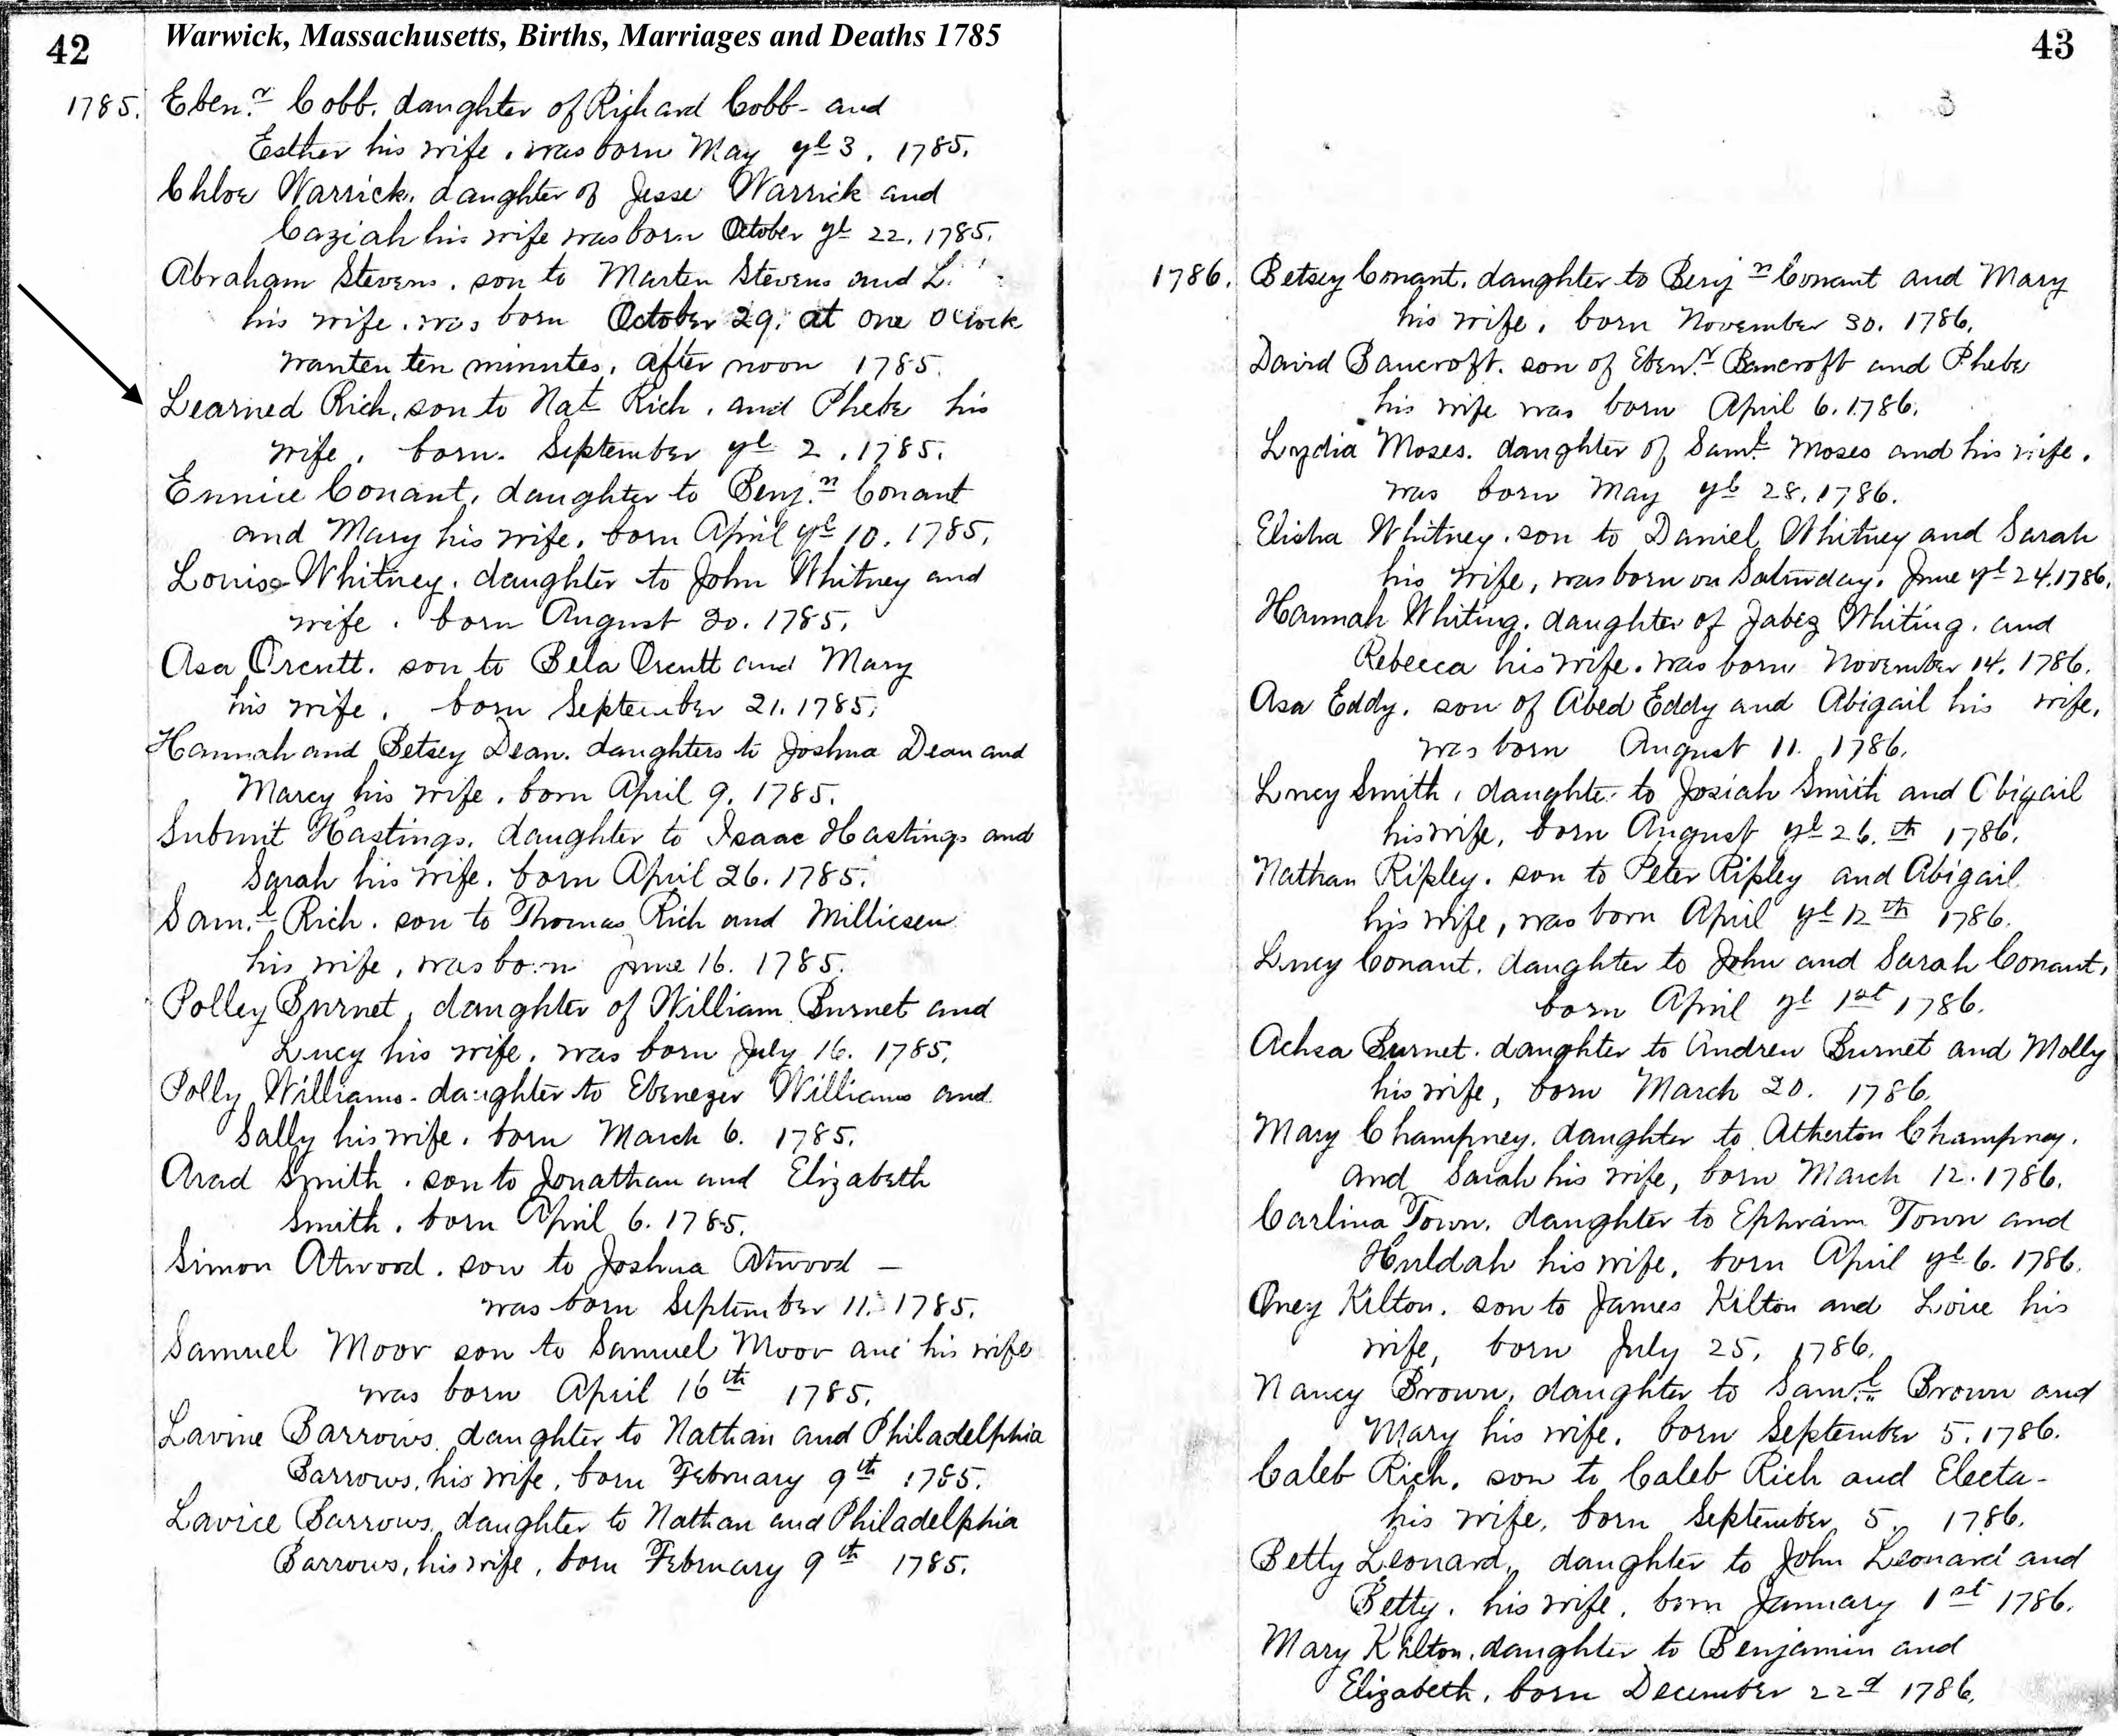 42
Warwick, Massachusetts, Births, Marriages and Deaths 1785
1785. Eben.r Cobb. daughter of Richard Cobb - and
Esther his wife. was born May ye 3. 1785.
Chloe Warrick. daughter of Jesse Warrick and
Caziah his wife was born October ye 22. 1785.
Abraham Stevens. son to Marten Stevens and L.
his wife. was born October 29. at one O'clock
wanten ten minutes. after noon 1785.
Learned Rich, son to Nat Rich. and Phebe his
wife. born. September ye 2. 1785.
Eunice Conant, daughter to Benj.n Conant
and Mary his wife. born April ye 10. 1785.
Louisa Whitney. daughter to John Whitney and
wife. born August 20. 1785.
Asa Orcutt. son to Bela Orcutt and Mary
his wife. born September 21. 1785.
Hannah and Betsey Dean. daughters to Joshua Dean and
Marcy his wife. born April 9. 1785.
Submit Hastings. daughter to Isaac Hastings and
Sarah his wife. born April 26. 1785.
Sam.l Rich. son to Thomas Rich and Millicsen
his wife, was born June 16. 1785.
Polley Burnet, daughter of William Burnet and
Lucy his wife. was born July 16. 1785.
Polly Williams - daughter to Ebenezer Williams and
Sally his wife. born March 6. 1785.
Arad Smith. son to Jonathan and Elizabeth
Smith. born April 6. 1785.
Simon Atwood. son to Joshua Atwood —
was born September 11. 1785.
Samuel Moor son to Samuel Moor and his wife
was born April 16th 1785.
Lavine Barrows. daughter to Nathan and Philadelphia
Barrows, his wife. born February 9th 1785.
Lavice Barrows. daughter to Nathan and Philadelphia
Barrows, his wife, born February 9th 1785.
43
1786. Betsey Conant. daughter to Benj n Conant and Mary
his wife. born November 30. 1786.
David Bancroft. son of Eben.r Bancroft and Phebe
his wife was born April 6. 1786.
Lydia Moses. daughter of Sam.l Moses and his wife.
was born May ye 28. 1786.
Elisha Whitney. son to Daniel Whitney and Sarah
his wife, was born on Saturday. June ye 24. 1786.
Hannah Whiting. daughter of Jabez Whiting. and
Rebecca his wife. was born November 14. 1786.
Asa Eddy. son of Abed Eddy and Abigail his wife,
was born August 11. 1786.
Lucy Smith, daughter to Josiah Smith and Abigail
his wife, born August ye 26.th 1786.
Nathan Ripley. son to Peter Ripley and Abigail
his wife, was born April ye 12th 1786.
Lucy Conant. daughter to John and Sarah Conant,
born April ye 1st 1786.
Achsa Burnet. daughter to Andrew Burnet and Molly
his wife, born March 20. 1786.
Mary Champney. daughter to Atherton Champney.
and Sarah his wife, born March 12. 1786.
Carlina Town. daughter to Ephraim Town and
Huldah his wife. born April ye 6. 1786.
Oney Kilton. son to James Kilton and Loice his
wife, born July 25. 1786.
Nancy Brown, daughter to Sam.l Brown and
Mary his wife. born September 5. 1786.
Caleb Rich. son to Caleb Rich and Electa -
his wife. born September 5. 1786.
Betty Leonard, daughter to John Leonard and
Betty. his wife. born January 1st 1786.
Mary Kilton. daughter to Benjamin and
Elizabeth. born December 22d 1786.